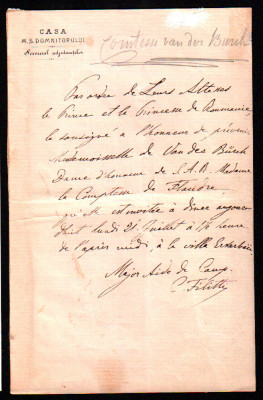 CASA
M.S. DOMNITORULUI
Serviciul adjutanților
Comtesse van der Burch
Par ordre de Leurs Altesses
le Prince et la Princesse de Roumanie,
le soussigné a l'honneur de prévenir
Mademoiselle de Van der Bürch
Dame d'honneur de S.A.R. Madame
la Comtesse de Flandre,
qu'elle est invitée à diner
lundi 21 Juillet à
de l'après midi, à la villa
Major Aide de Camp
C. Filitti